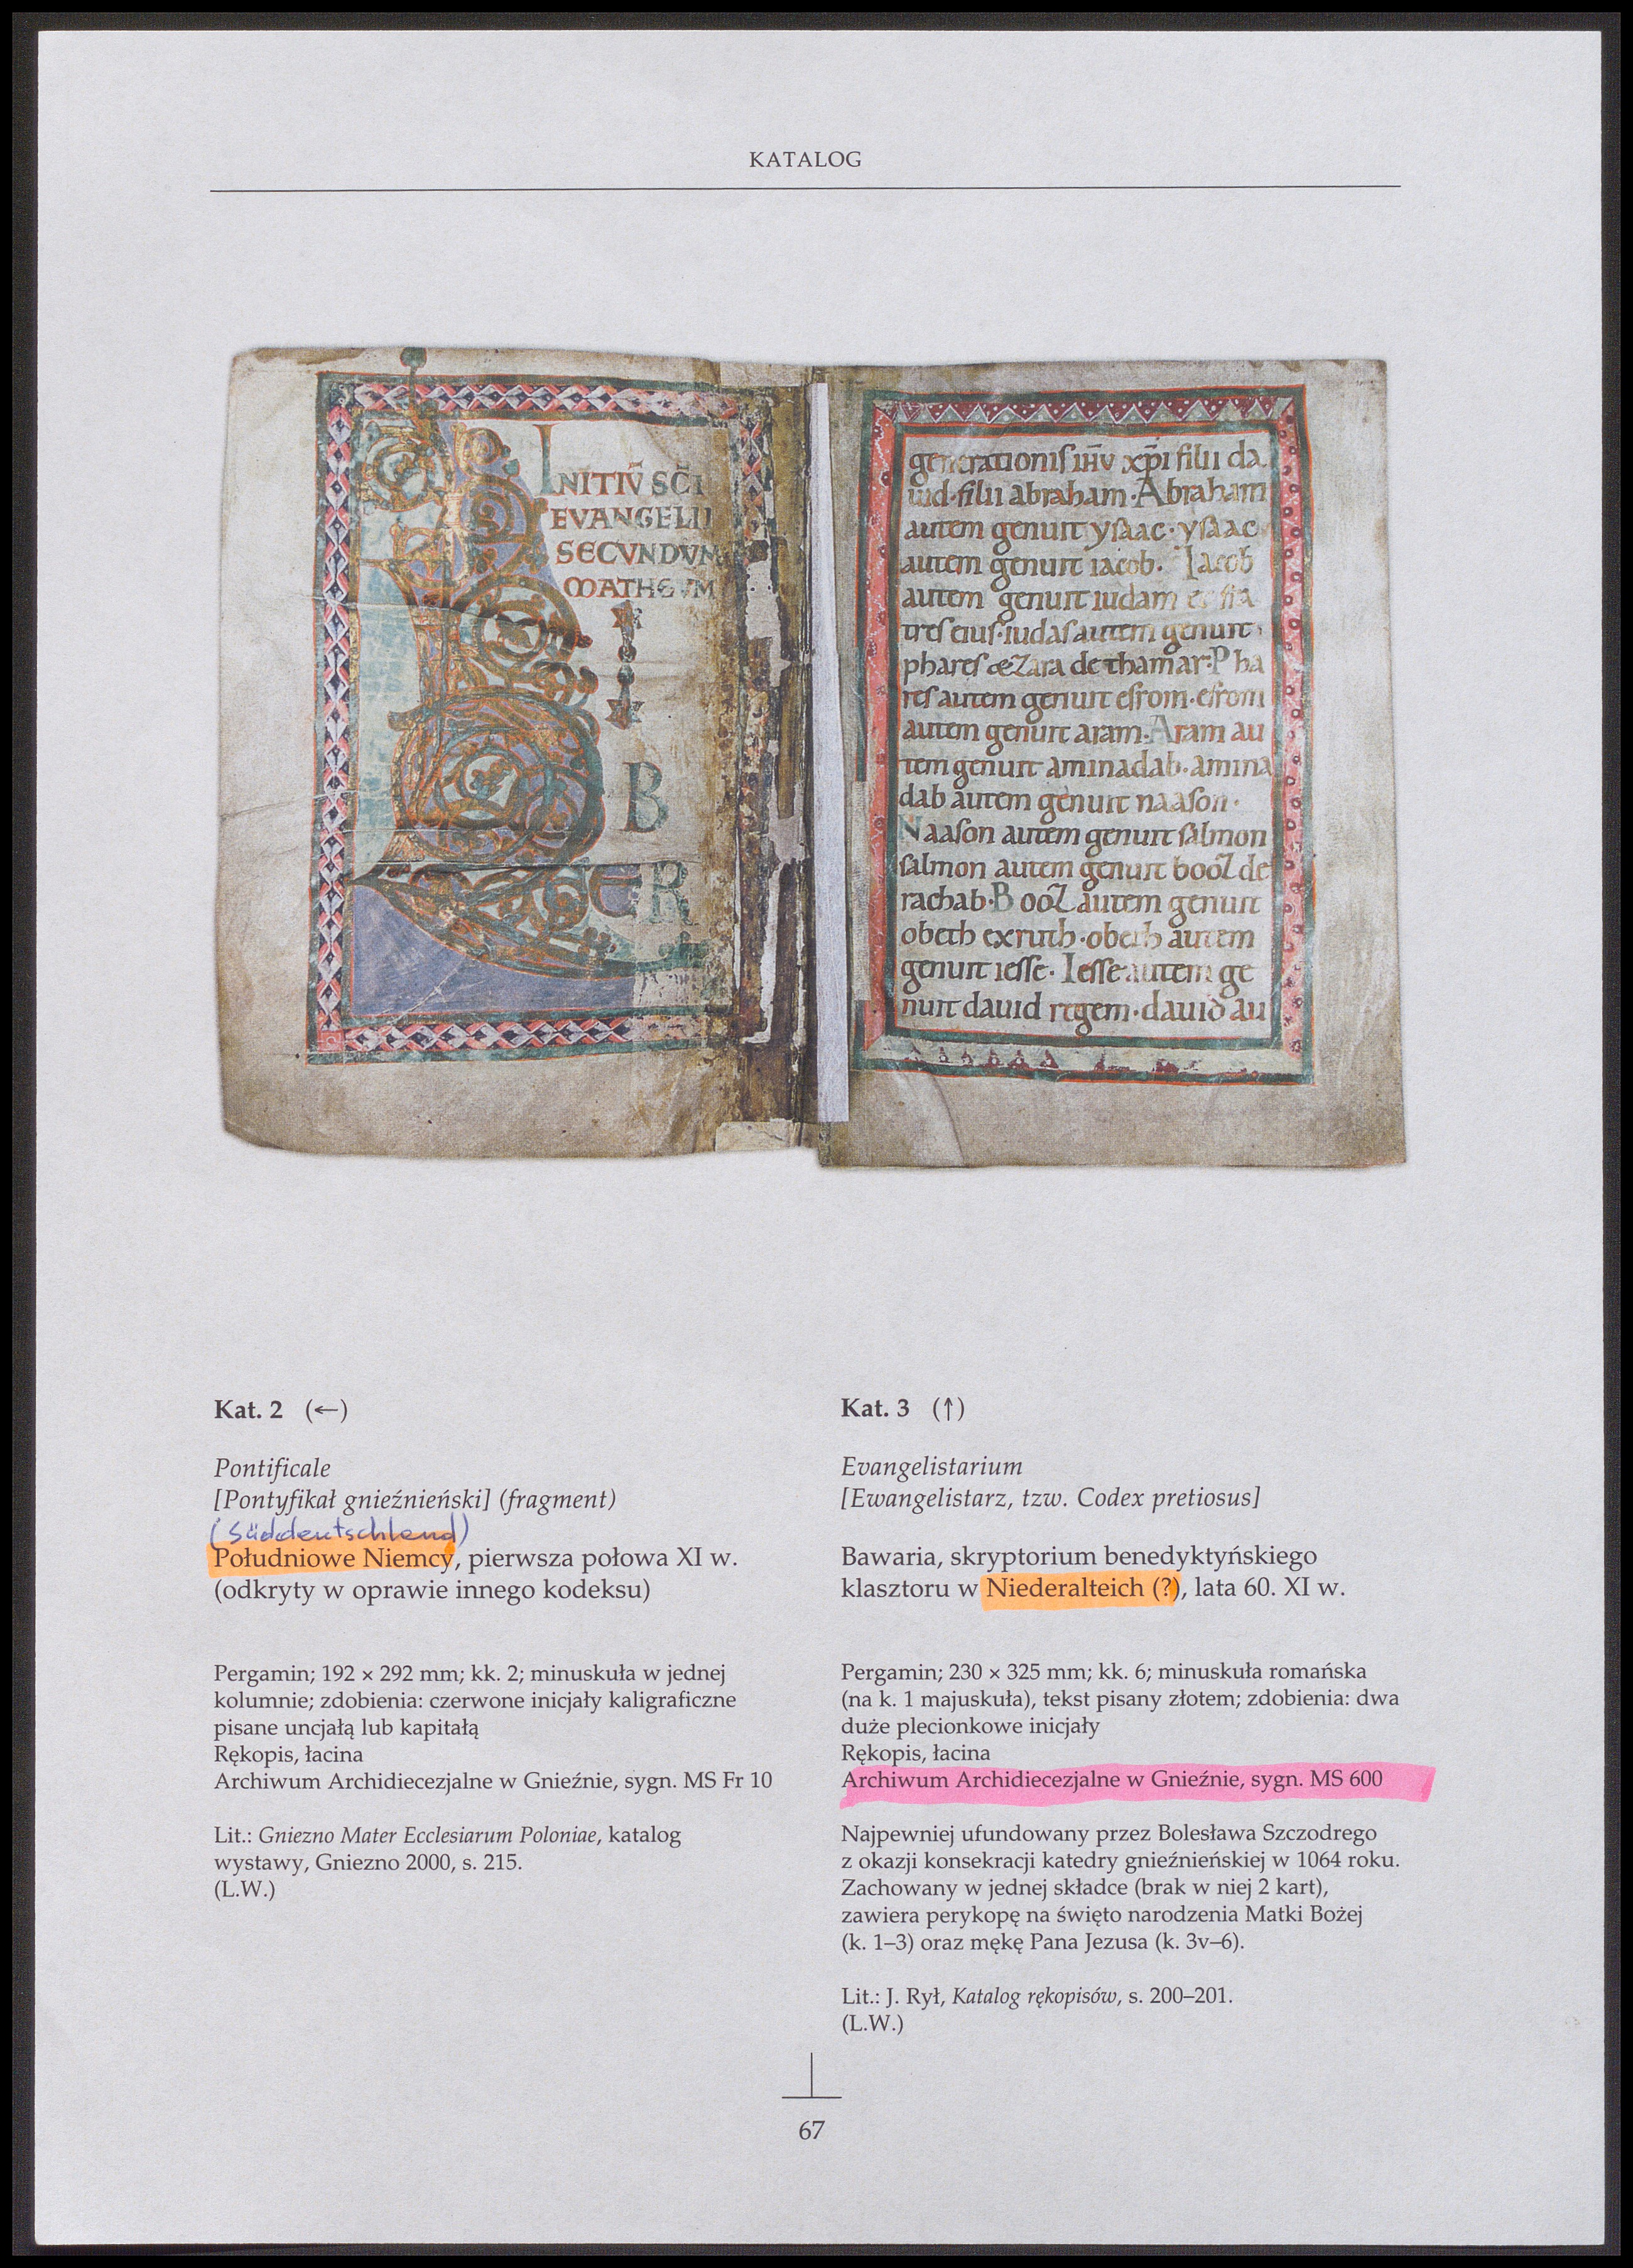 KATALOG
INITIV̄ SC̄I
EVANGELII
SECVNDVM
MATHEVM
L
I
B
ER
generationis ihv̄ xp̄i filii da
uid·filii abraham·Abraham
autem genuit ysaac·ysaac
autem genuit iacob. Iacob
autem genuit iudam et fra
tres eius·iudas autem genuit
phares & Zara de thamar·Pha
res autem genuit esrom·esrom
autem genuit aram·Aram au
tem genuit aminadab·amina
dab autem genuit naason·
Naason autem genuit salmon
salmon autem genuit booZ de
rachab·BooZ autem genuit
obeth ex ruth·obeth autem
genuit iesse. Iesse autem ge
nuit dauid regem·dauid au
Kat. 2 (←)
Pontificale
[Pontyfikał gnieźnieński] (fragment)
(Süddeutschland)
Południowe Niemcy, pierwsza połowa XI w.
(odkryty w oprawie innego kodeksu)
Pergamin; 192 × 292 mm; kk. 2; minuskuła w jednej
kolumnie; zdobienia: czerwone inicjały kaligraficzne
pisane uncjałą lub kapitałą
Rękopis, łacina
Archiwum Archidiecezjalne w Gnieźnie, sygn. MS Fr 10
Lit.: Gniezno Mater Ecclesiarum Poloniae, katalog
wystawy, Gniezno 2000, s. 215.
(L.W.)
Kat. 3 (↑)
Evangelistarium
[Ewangelistarz, tzw. Codex pretiosus]
Bawaria, skryptorium benedyktyńskiego
klasztoru w Niederalteich (?), lata 60. XI w.
Pergamin; 230 × 325 mm; kk. 6; minuskuła romańska
(na k. 1 majuskuła), tekst pisany złotem; zdobienia: dwa
duże plecionkowe inicjały
Rękopis, łacina
Archiwum Archidiecezjalne w Gnieźnie, sygn. MS 600
Najpewniej ufundowany przez Bolesława Szczodrego
z okazji konsekracji katedry gnieźnieńskiej w 1064 roku.
Zachowany w jednej składce (brak w niej 2 kart),
zawiera perykopę na święto narodzenia Matki Bożej
(k. 1–3) oraz mękę Pana Jezusa (k. 3v–6).
Lit.: J. Rył, Katalog rękopisów, s. 200–201.
(L.W.)
67